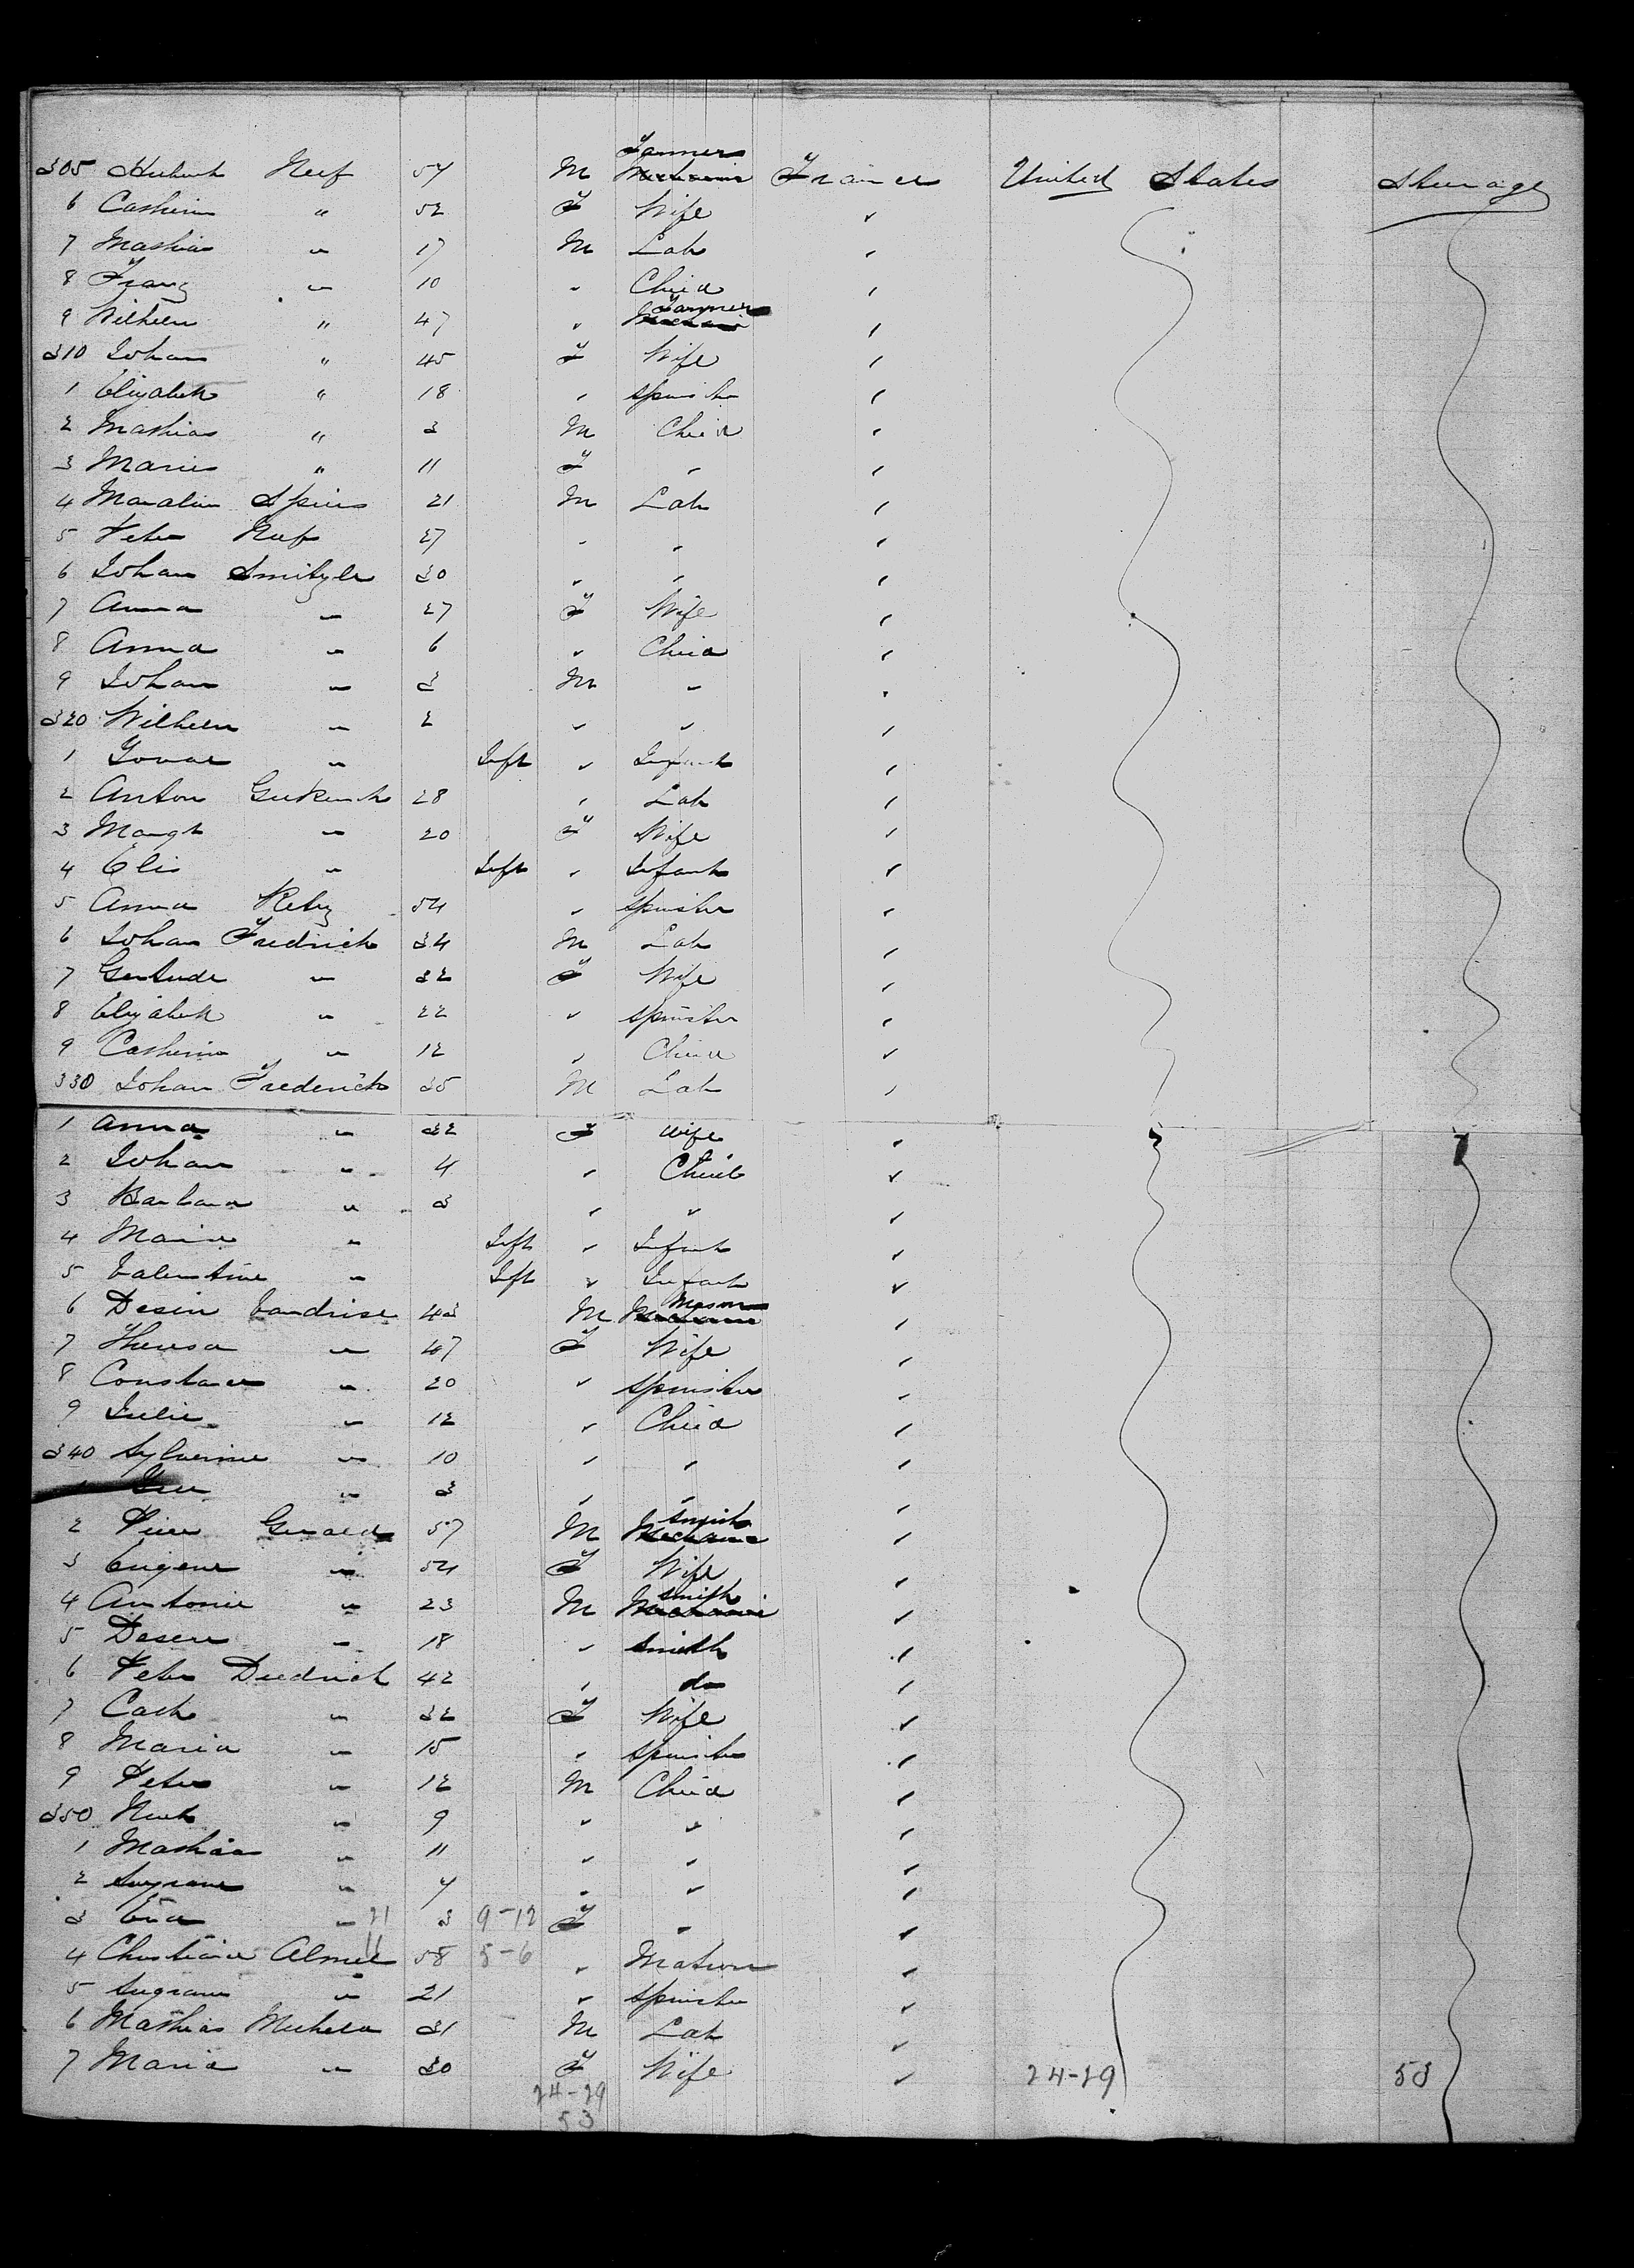 305 Hubert Neef 57 M Farmer Mechanic France United States Steerage
6 Cathrin " 52 F Wife "
7 Mathias " 17 M Lab "
8 Franz " 10 " Child "
9 Wilhelm " 47 " Farmer Mechanic "
310 Johan " 45 F Wife "
1 Elizabeth " 18 " Spinster "
2 Mathias " 3 M Child "
3 Marie " 11 F " "
4 Spies 21 M Lab "
5 Peter Neef 27 " " "
6 Johan Smitzler 30 " " "
7 Anna " 27 F Wife "
8 Anna " 6 " Child "
9 Johan " 3 M " "
320 Wilhelm " 2 " " "
1 " Inft " Infant "
2 Anton 28 " Lab "
3 Margt " 20 F Wife "
4 Elis " Inft " Infant "
5 Anna Retz 54 " Spinster "
6 Johan Fredrich 34 M Lab "
7 Gertrude " 32 F Wife "
8 Elizabeth " 22 " Spinster "
9 Catherine " 12 " Child "
330 Johan Frederick 35 M Lab "
1 Anna " 32 F Wife "
2 Johan " 4 " Child "
3 Barbara " 3 " " "
4 Marie " Inft " Infant "
5 Valentine " Inft " Infant "
6 Desire Vandrise 43 M Mason Mechanic "
7 Theresa " 47 F Wife "
8 Constance " 20 " Spinster "
9 Julie " 12 " Child "
340 Sylverine " 10 " " "
1 " 3 " " "
2 Pierre Gerard 57 M Smith Mechanic "
3 Eugene " 54 F Wife "
4 Antonie " 23 M Smith Mechanic "
5 Desere " 18 " Smith "
6 Peter Diedrich 42 " do "
7 Cath " 32 F Wife "
8 Maria " 15 " Spinster "
9 Peter " 12 M Child "
350 " 9 " " "
1 Mathias " 11 " " "
2 " 7 " " "
3 Eva " 21 3 9-12 F " "
4 Christiane 11 58 5-6 " Matron "
5 " 21 " Spinster "
6 Mathias Michela 31 M Lab "
7 Maria " 30 F Wife "
24-29 24-29 53
53